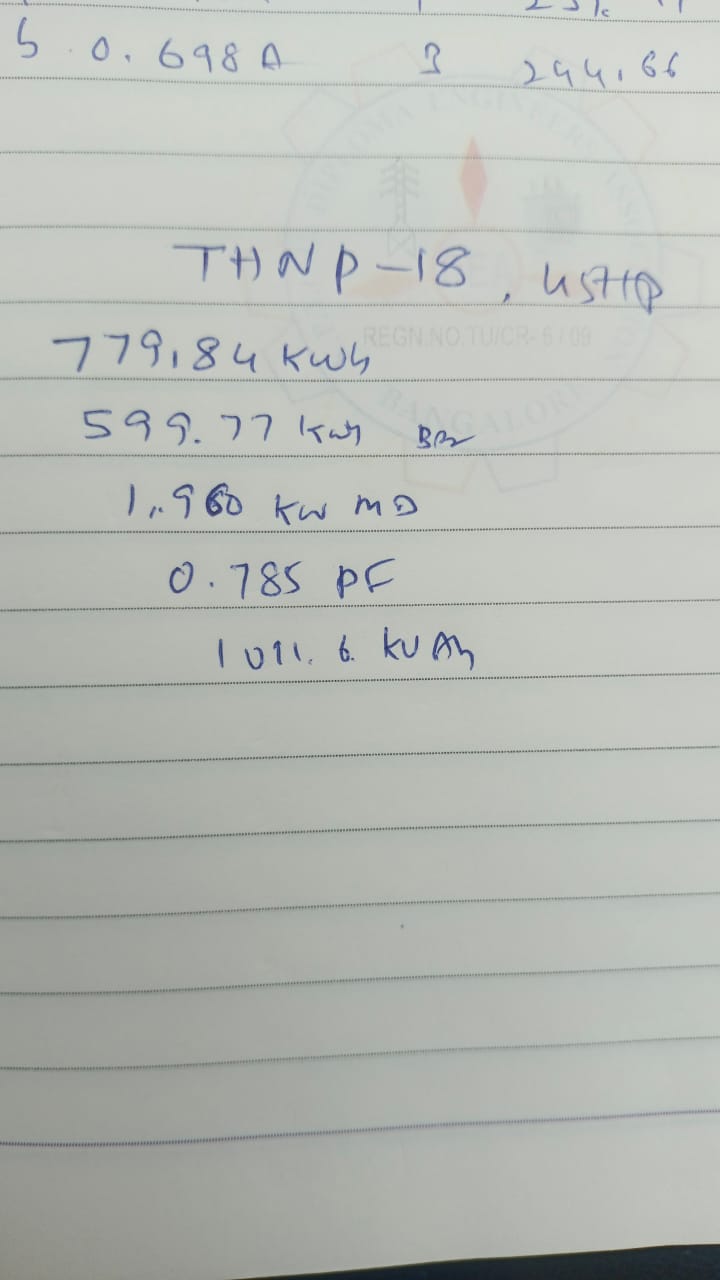 0.698 A 3 244.66
THNP-18,
779.84 KWh
599.77 Kwh
1.960 KW MD
0.785 PF
1011.6 KVAh
DIPLOMA ENGINEERS
REGN.NO.TU/CR- 6 / 09
BANGALORE